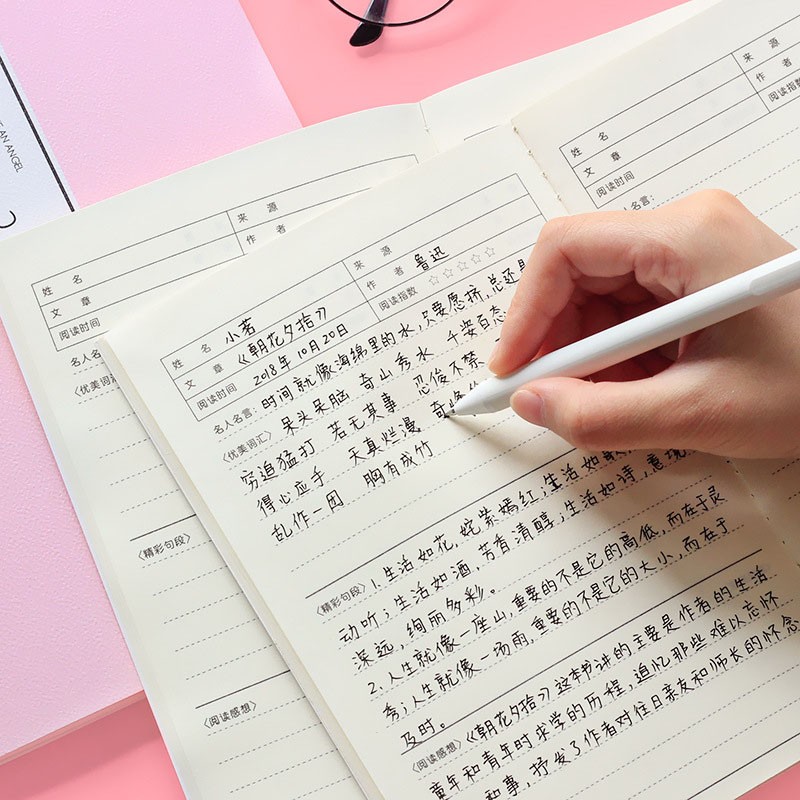 AN ANGEL
姓 名
来 源
文 章
作 者
阅读时间
名人名
〈优美词汇
〈精彩句段〉
〈阅读感想〉
姓 名 小若
来 源
文 章 《朝花夕拾》
作 者 鲁迅
阅读时间 2018年10月20日
阅读指数 ☆☆☆☆☆
名人名言: 时间就像海绵里的水,只要愿挤,总还是
〈优美词汇〉 呆头呆脑 奇山秀水 千姿百态
穷追猛打 若无其事 忍俊不禁
得心应手 天真烂漫 奇峰
乱作一团 胸有成竹
〈精彩句段〉 1.生活如花,姹紫嫣红;生活如歌
动听;生活如酒,芳香清醇;生活如诗,意境
深远,绚丽多彩。
2.人生就像一座山,重要的不是它的高低,而在于灵
秀;人生就像一场雨,重要的不是它的大小,而在于
及时。
〈阅读感想〉 《朝花夕拾》这本书讲的主要是作者的生活
童年和青年时求学的历程,追忆那些难以忘怀
和事,抒发了作者对往日亲友和师长的怀念
姓 名
来 源
文 章
作 者
阅读时间
阅读指数
人名言: